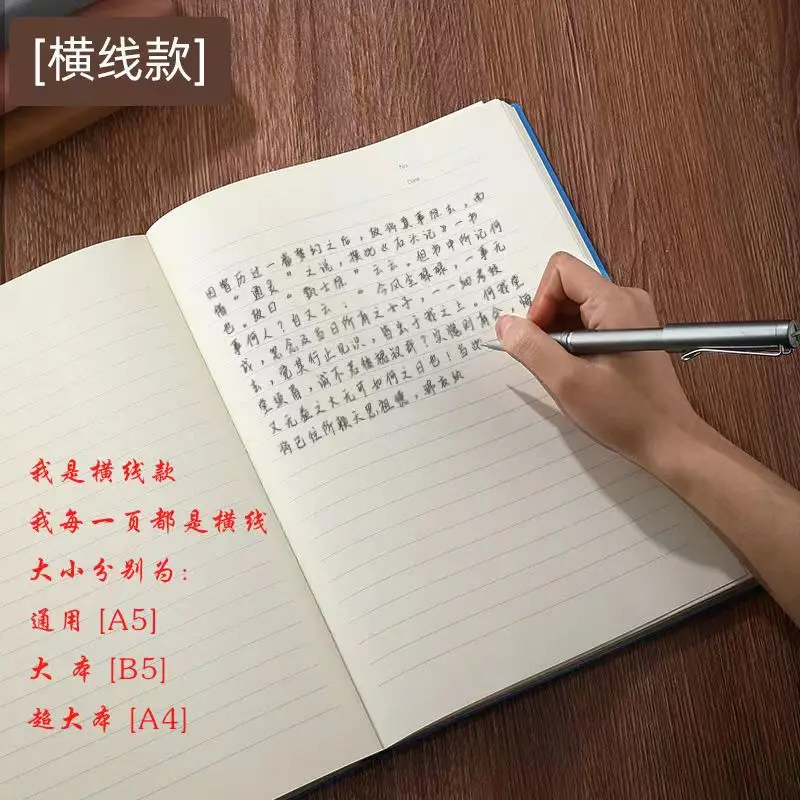 [横线款]
No.
Date
因曾历过一番梦幻之后,故将真事隐去,而
借"通灵"之说,撰此《石头记》一书
也。故曰"甄士隐"云云。但书中所记何
事何人?自又云:"今风尘碌碌,一事无
成,忽念及当日所有之女子,一一细考较
去,觉其行止见识,皆出于我之上。何我堂
堂须眉,诚不若彼裙钗哉?实愧则有余,悔
又无益之大无可如何之日也!当此
将已往所赖天恩祖德,锦衣纨
我是横线款
我每一页都是横线
大小分别为:
通用 [A5]
大本 [B5]
超大本 [A4]